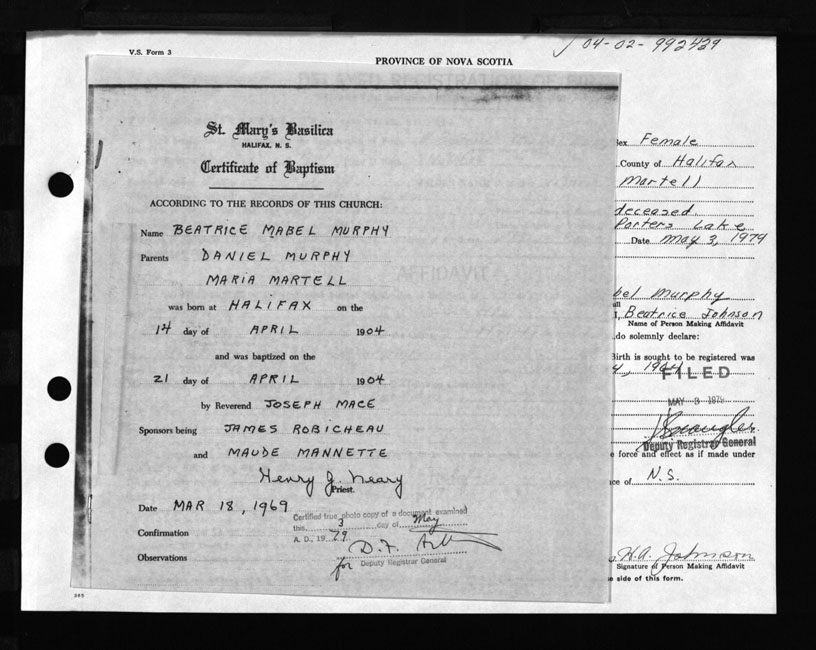 V.S. Form 3
04-02-992429
PROVINCE OF NOVA SCOTIA
St. Mary's Basilica
HALIFAX, N. S.
Certificate of Baptism
ACCORDING TO THE RECORDS OF THIS CHURCH:
Name BEATRICE MABEL MURPHY
Parents DANIEL MURPHY
MARIA MARTELL
was born at HALIFAX on the
14 day of APRIL 1904
and was baptized on the
21 day of APRIL 1904
by Reverend JOSEPH MACE
Sponsors being JAMES ROBICHEAU
and MAUDE MANNETTE
Henry J. Neary
Priest.
Date MAR 18, 1969
Certified true photo copy of a document examined
this 3 day of May
A. D., 19 79
Confirmation
D.F.
Observations
for Deputy Registrar General
ex Female
County of Halifax
Martell
deceased
Porters Lake
Date May 3, 1979
bel Murphy
all
I, Beatrice Johnson
Name of Person Making Affidavit
do solemnly declare:
Birth is sought to be registered was
FILED
MAY 3 1979
Deputy Registrar General
e force and effect as if made under
ce of N.S.
Johnson
Signature of Person Making Affidavit
e side of this form.